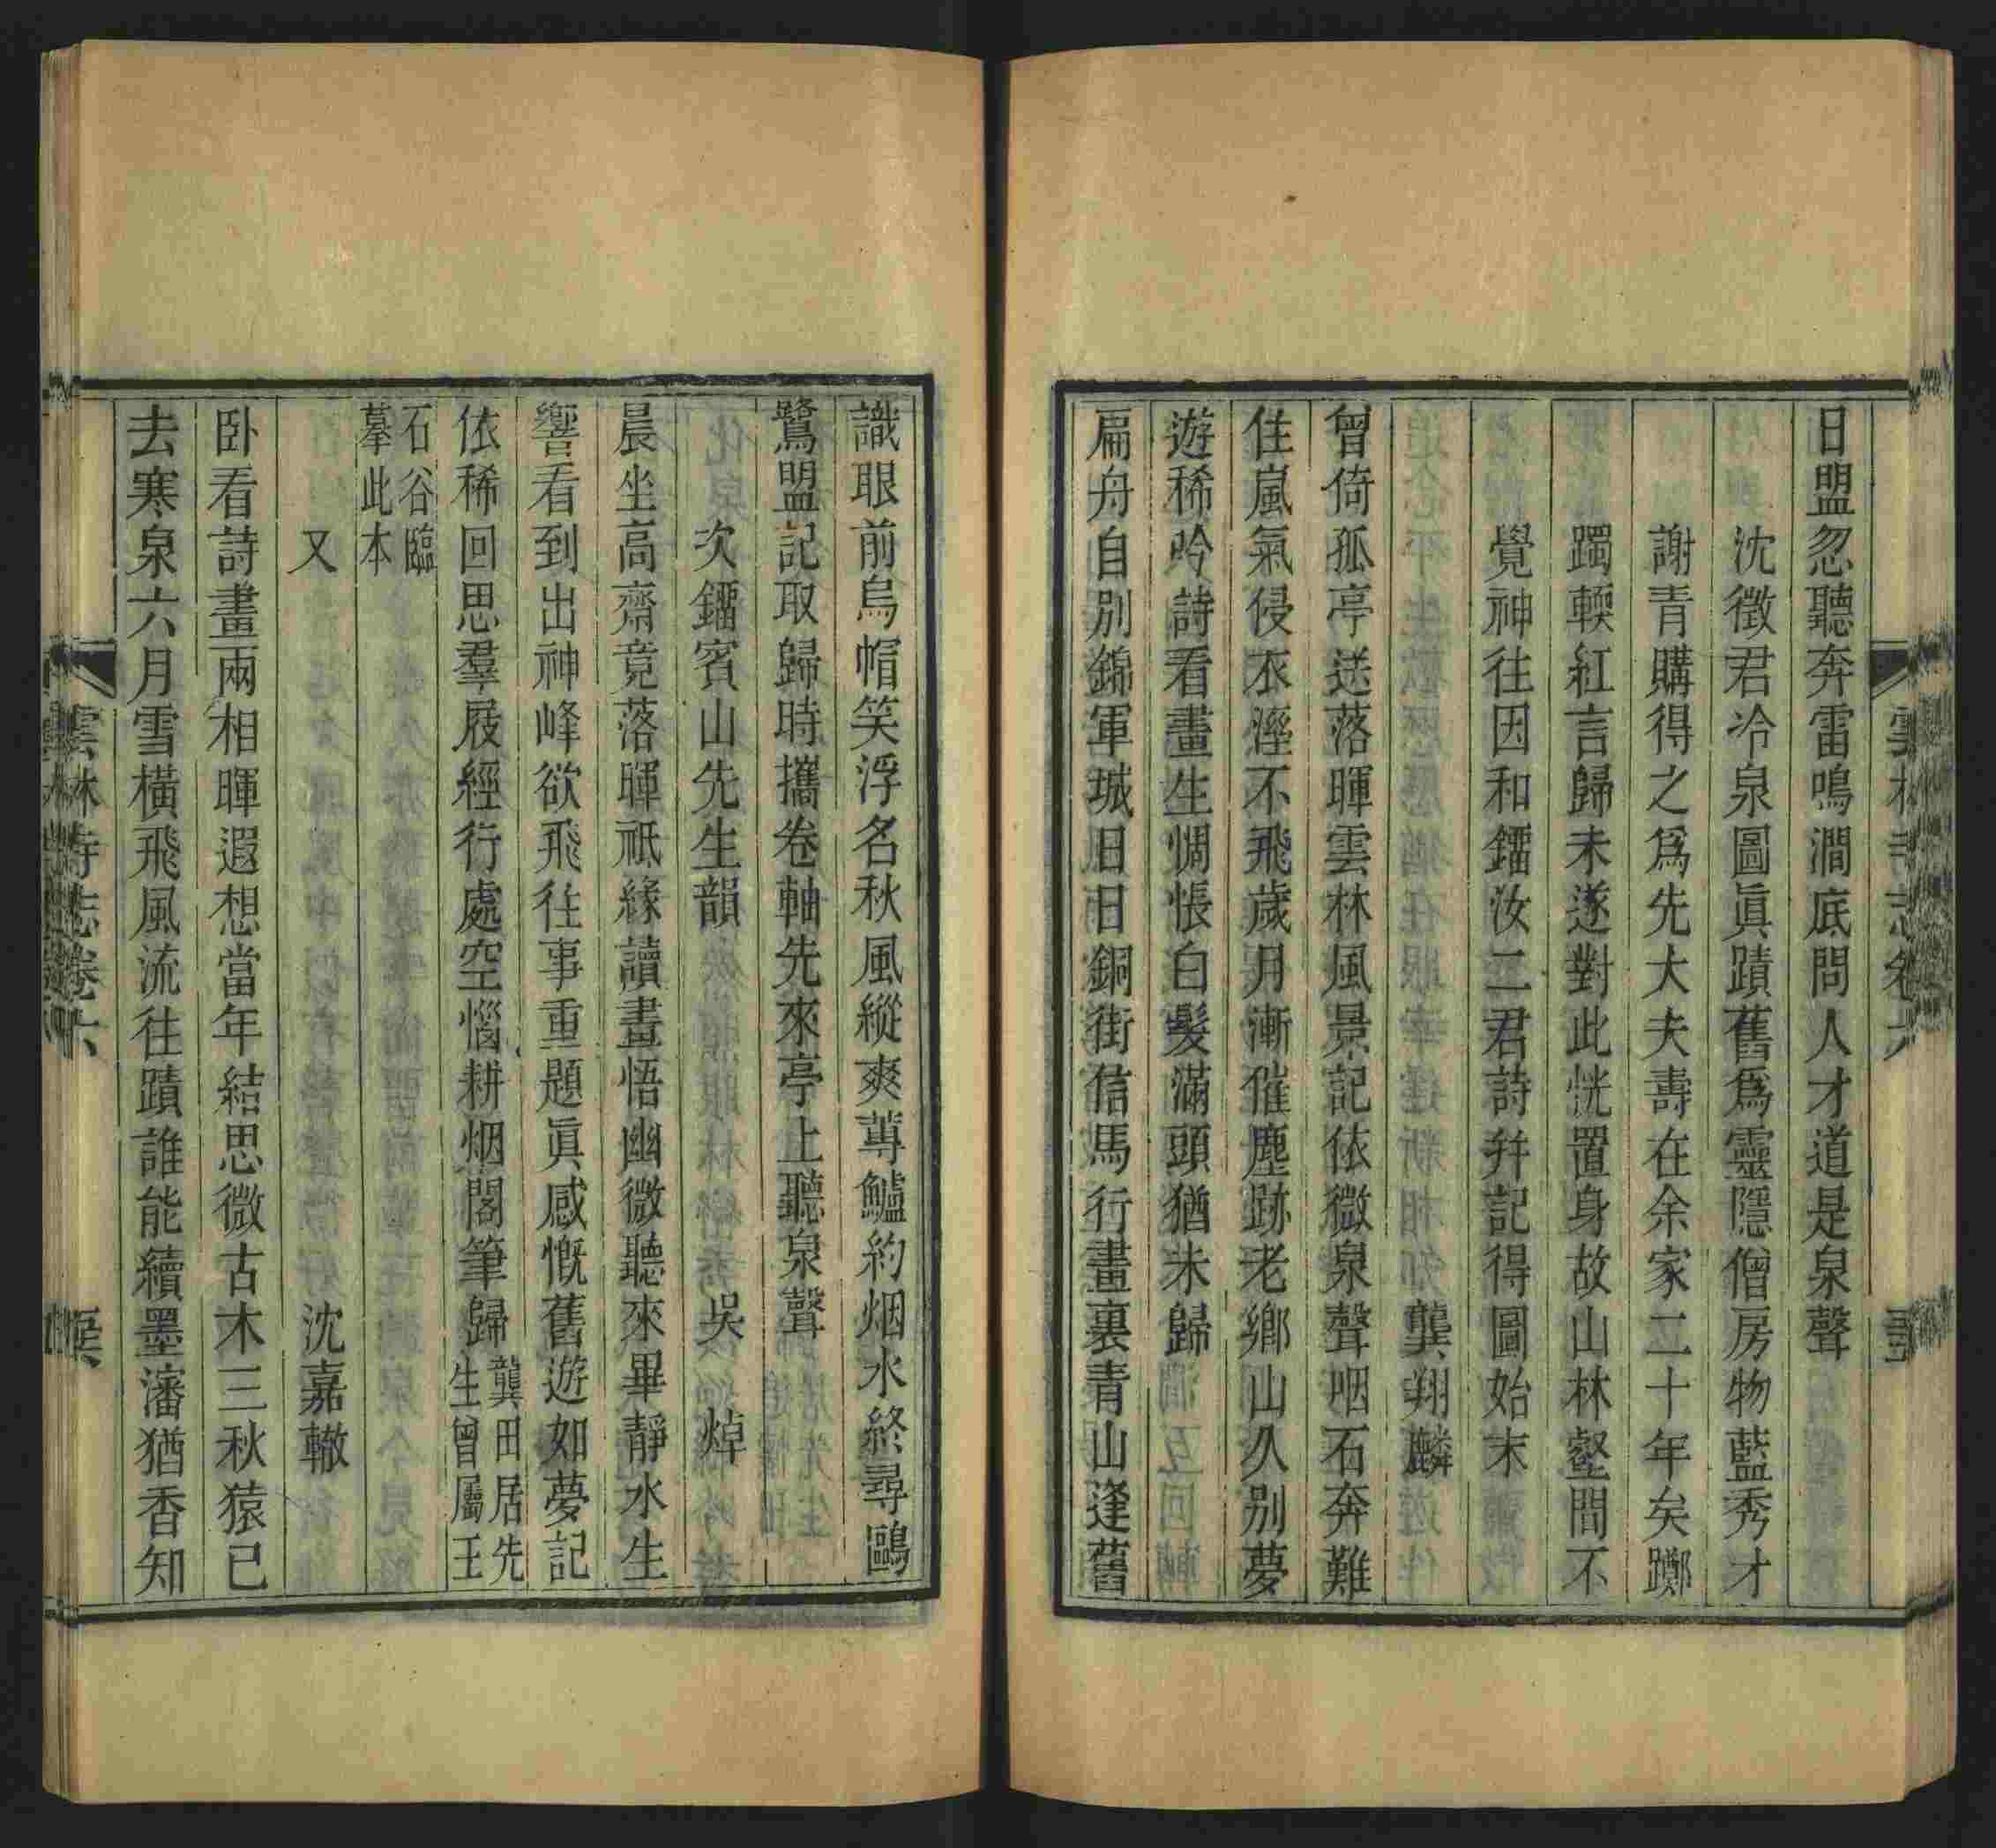 日盟忽聽奔雷鳴澗底問人才道是泉聲
沈徵君冷泉圖眞蹟舊爲靈隱僧房物藍秀才
謝青購得之爲先大夫壽在余家二十年矣躑
躅輭紅言歸未遂對此恍置身故山林壑間不
覺神往因和鐂汝二君詩幷記得圖始末
龔翔麟
曾倚孤亭送落暉雲林風景記依微泉聲咽石奔難
住嵐氣侵衣溼不飛歲月漸催塵跡老鄉山久別夢
遊稀吟詩看畫生惆悵白髮滿頭猶未歸
扁舟自別錦軍城旧日銅街信馬行畫裏青山逢舊
識眼前烏帽笑浮名秋風縱爽蓴鱸約烟水終尋鷗
鷺盟記取歸時攜卷軸先來亭上聽泉聲
次鐂賓山先生韻 吳焯
晨坐高齋竟落暉祇緣讀畫悟幽微聽來畢靜水生
響看到出神峰欲飛往事重題眞感慨舊遊如夢記
依稀回思羣屐經行處空惱耕烟閣筆歸 龔田居先生曾屬王
石谷臨摹此本
又 沈嘉轍
卧看詩畫兩相暉遐想當年結思微古木三秋猿已
去寒泉六月雪橫飛風流往蹟誰能續墨瀋猶香知
雲林寺志卷六